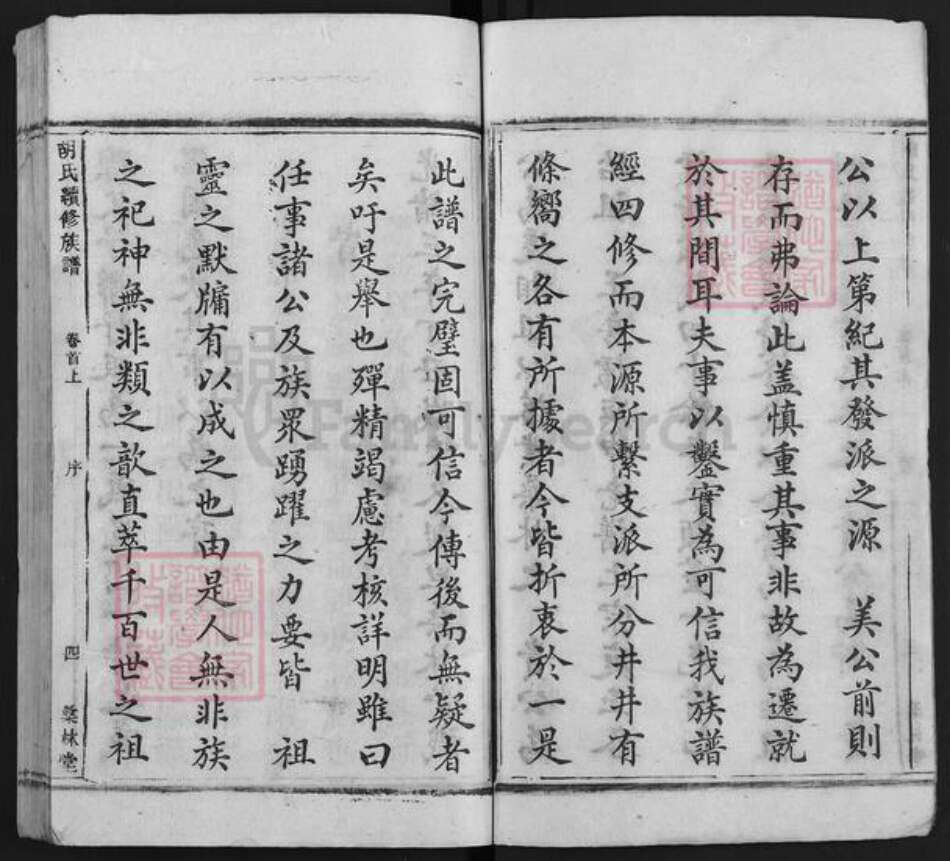 公以上第紀其發派之源 美公前則
存而弗論此盖慎重其事非故為遷就
於其間耳夫事以鑿實為可信我族譜
經四修而本源所繫支派所分井井有
條嚮之各有所據者今皆折衷於一是
此譜之完璧固可信今傳後而無疑者
矣吁是舉也殫精竭慮考核詳明雖曰
任事諸公及族眾踴躍之力要皆 祖
靈之默牖有以成之也由是人無非族
之祀神無非類之歆直萃千百世之祖
胡氏續修族譜 卷首上 序 四 林堂
FamilySearch